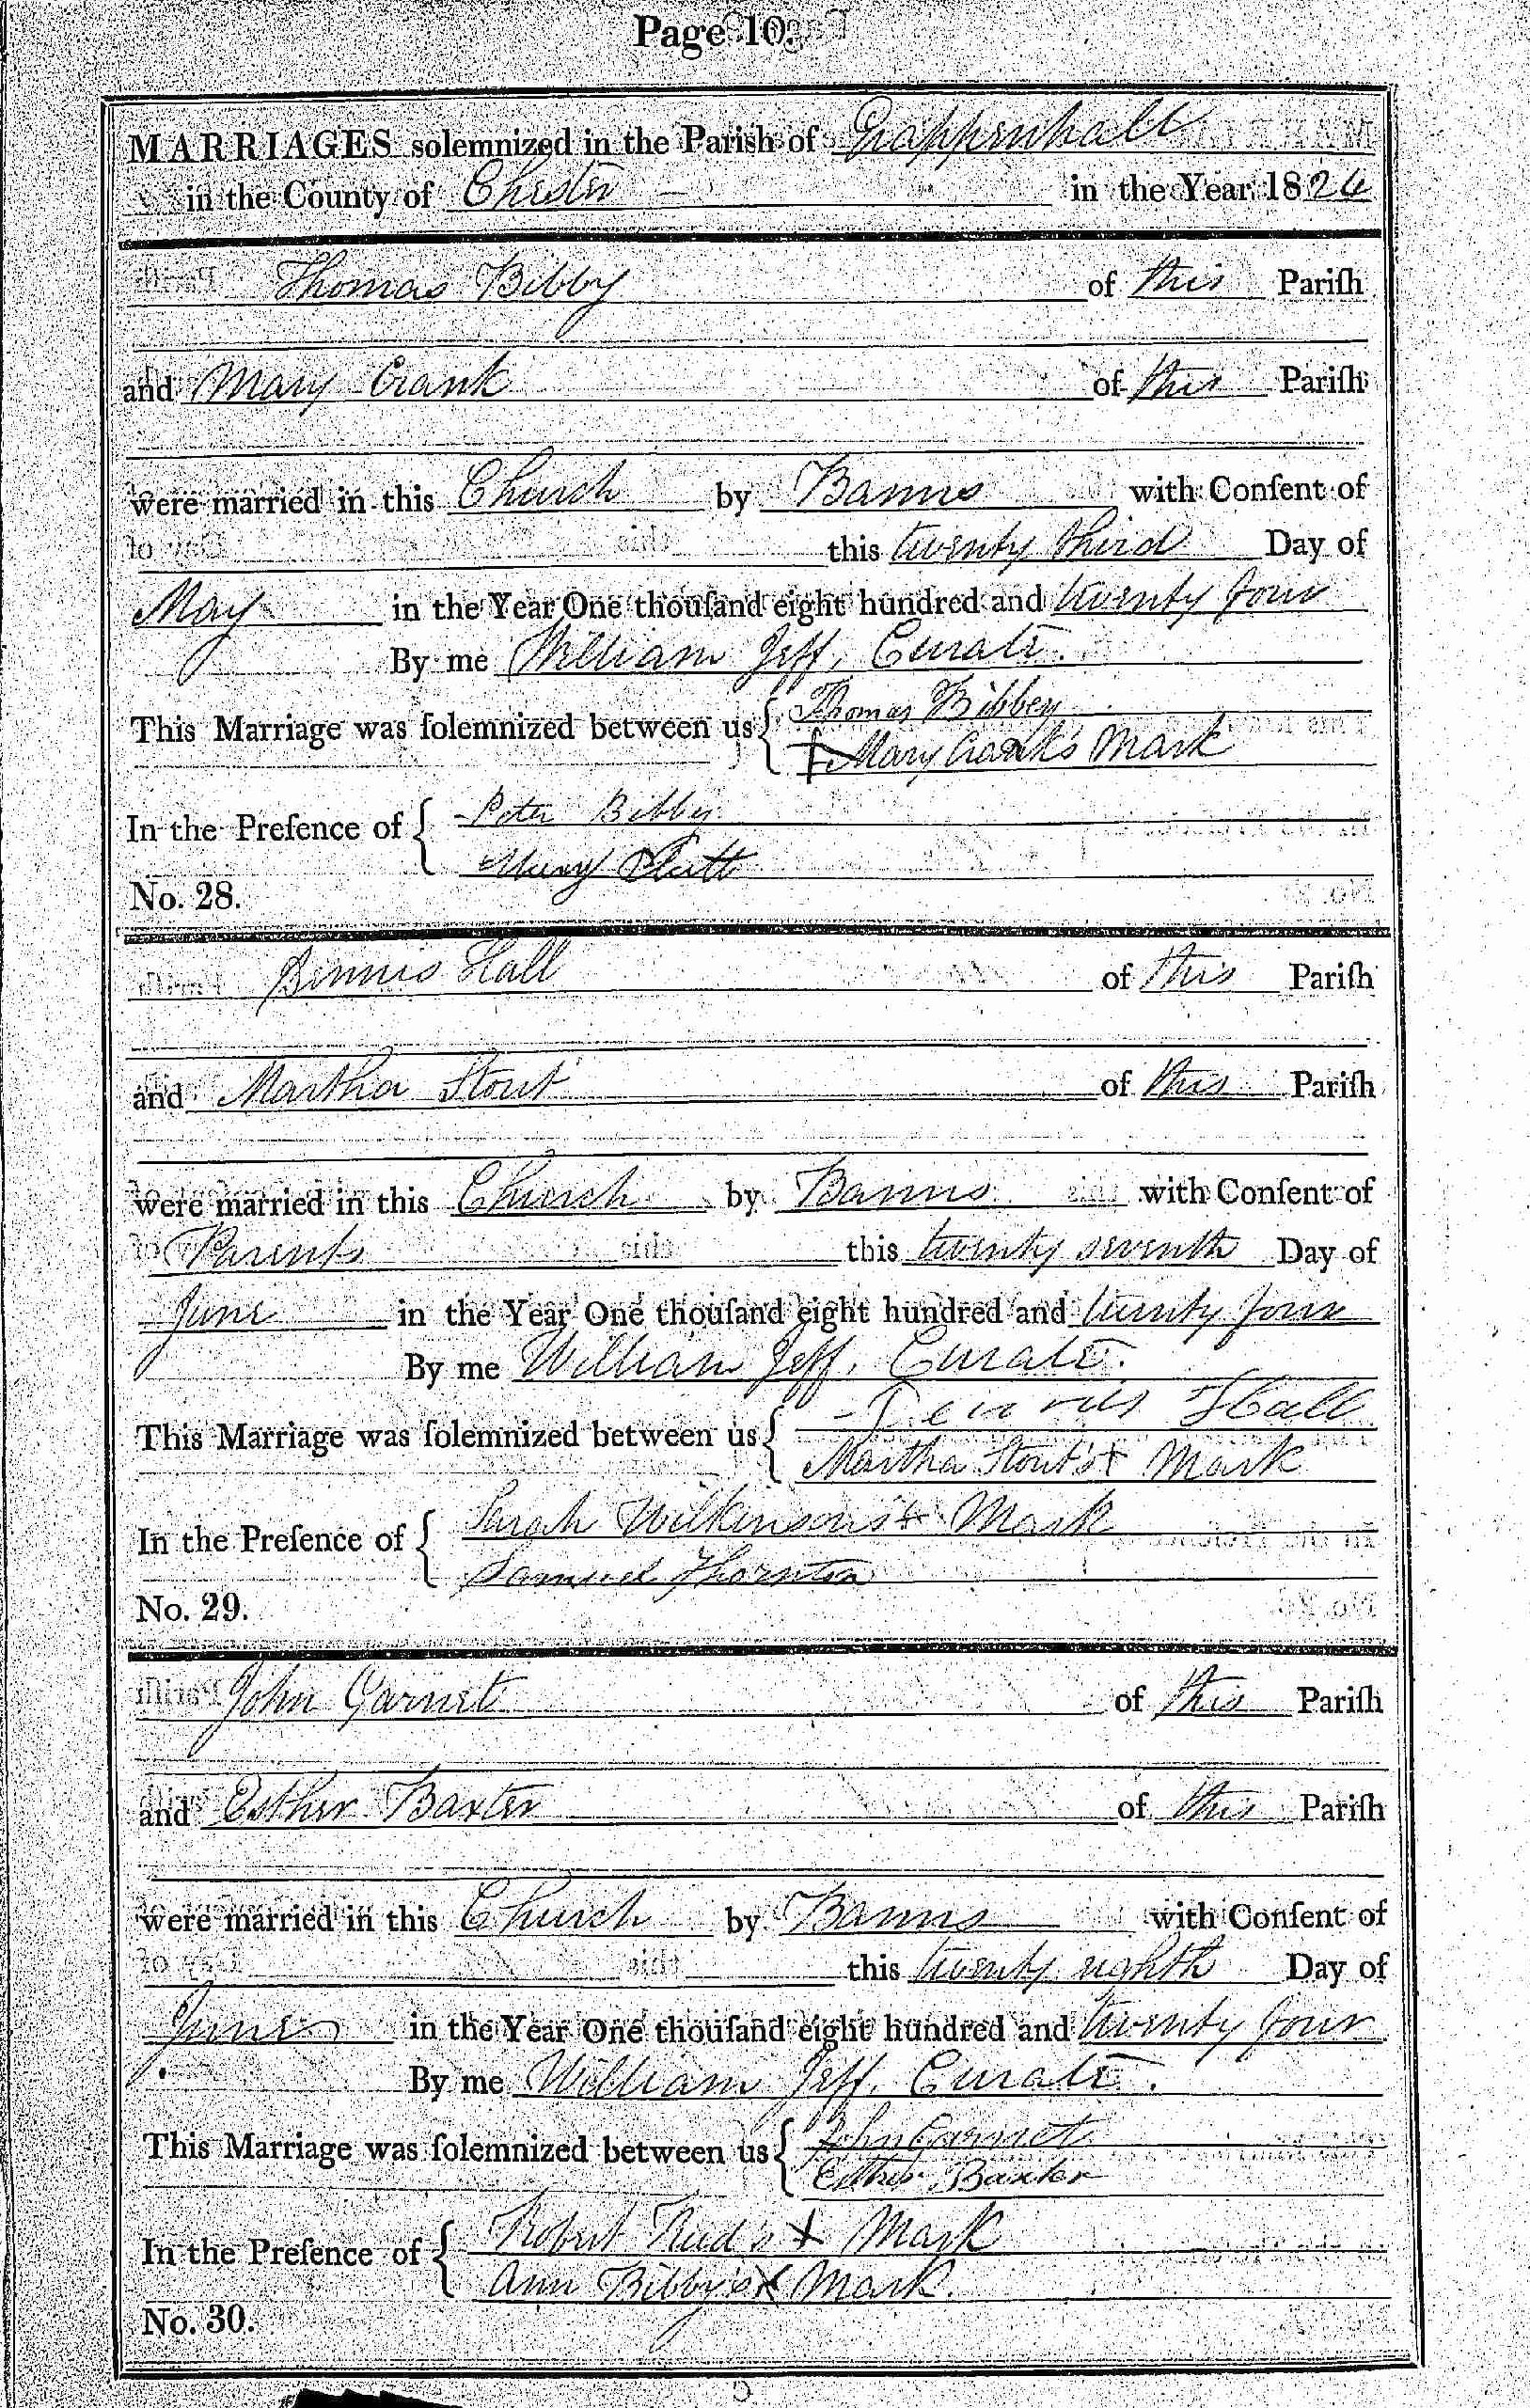 Page 10.
MARRIAGES solemnized in the Parish of Grappenhall
in the County of Chester in the Year 1824
Thomas Bibby of this Pariſh
and Mary Crank of this Pariſh
were married in this Church by Banns with Conſent of
this twenty third Day of
May in the Year One thouſand eight hundred and twenty four
By me William Jeff, Curate.
This Marriage was ſolemnized between us { Thomas Bibbey
+ Mary Crank's Mark
In the Preſence of { Peter Bibby
Mary Platt
No. 28.
Dennis Hall of this Pariſh
and Martha Stout of this Pariſh
were married in this Church by Banns with Conſent of
Parents this twenty seventh Day of
June in the Year One thouſand eight hundred and twenty four
By me William Jeff, Curate.
This Marriage was ſolemnized between us { Hall
Martha Stout's + Mark
In the Preſence of { Sarah Wilkinson's + Mark
Samuel Thornton
No. 29.
John Garnet of this Pariſh
and Esther Baxter of this Pariſh
were married in this Church by Banns with Conſent of
this twenty eighth Day of
June in the Year One thouſand eight hundred and twenty four
By me William Jeff, Curate.
This Marriage was ſolemnized between us { John Garnet
Esther Baxter
In the Preſence of { Robert Reed's + Mark
Ann Bibby's X Mark.
No. 30.